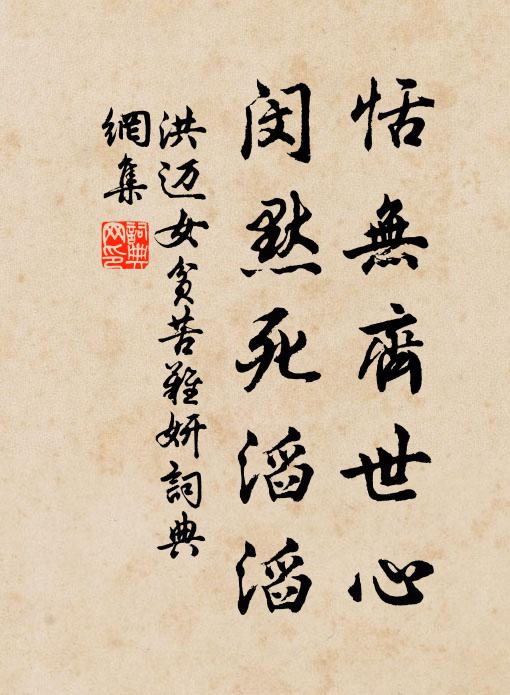 恬無齊世心
闵默死滔滔
洪迈女贫苦難妍詞典
網集
詞典
网印